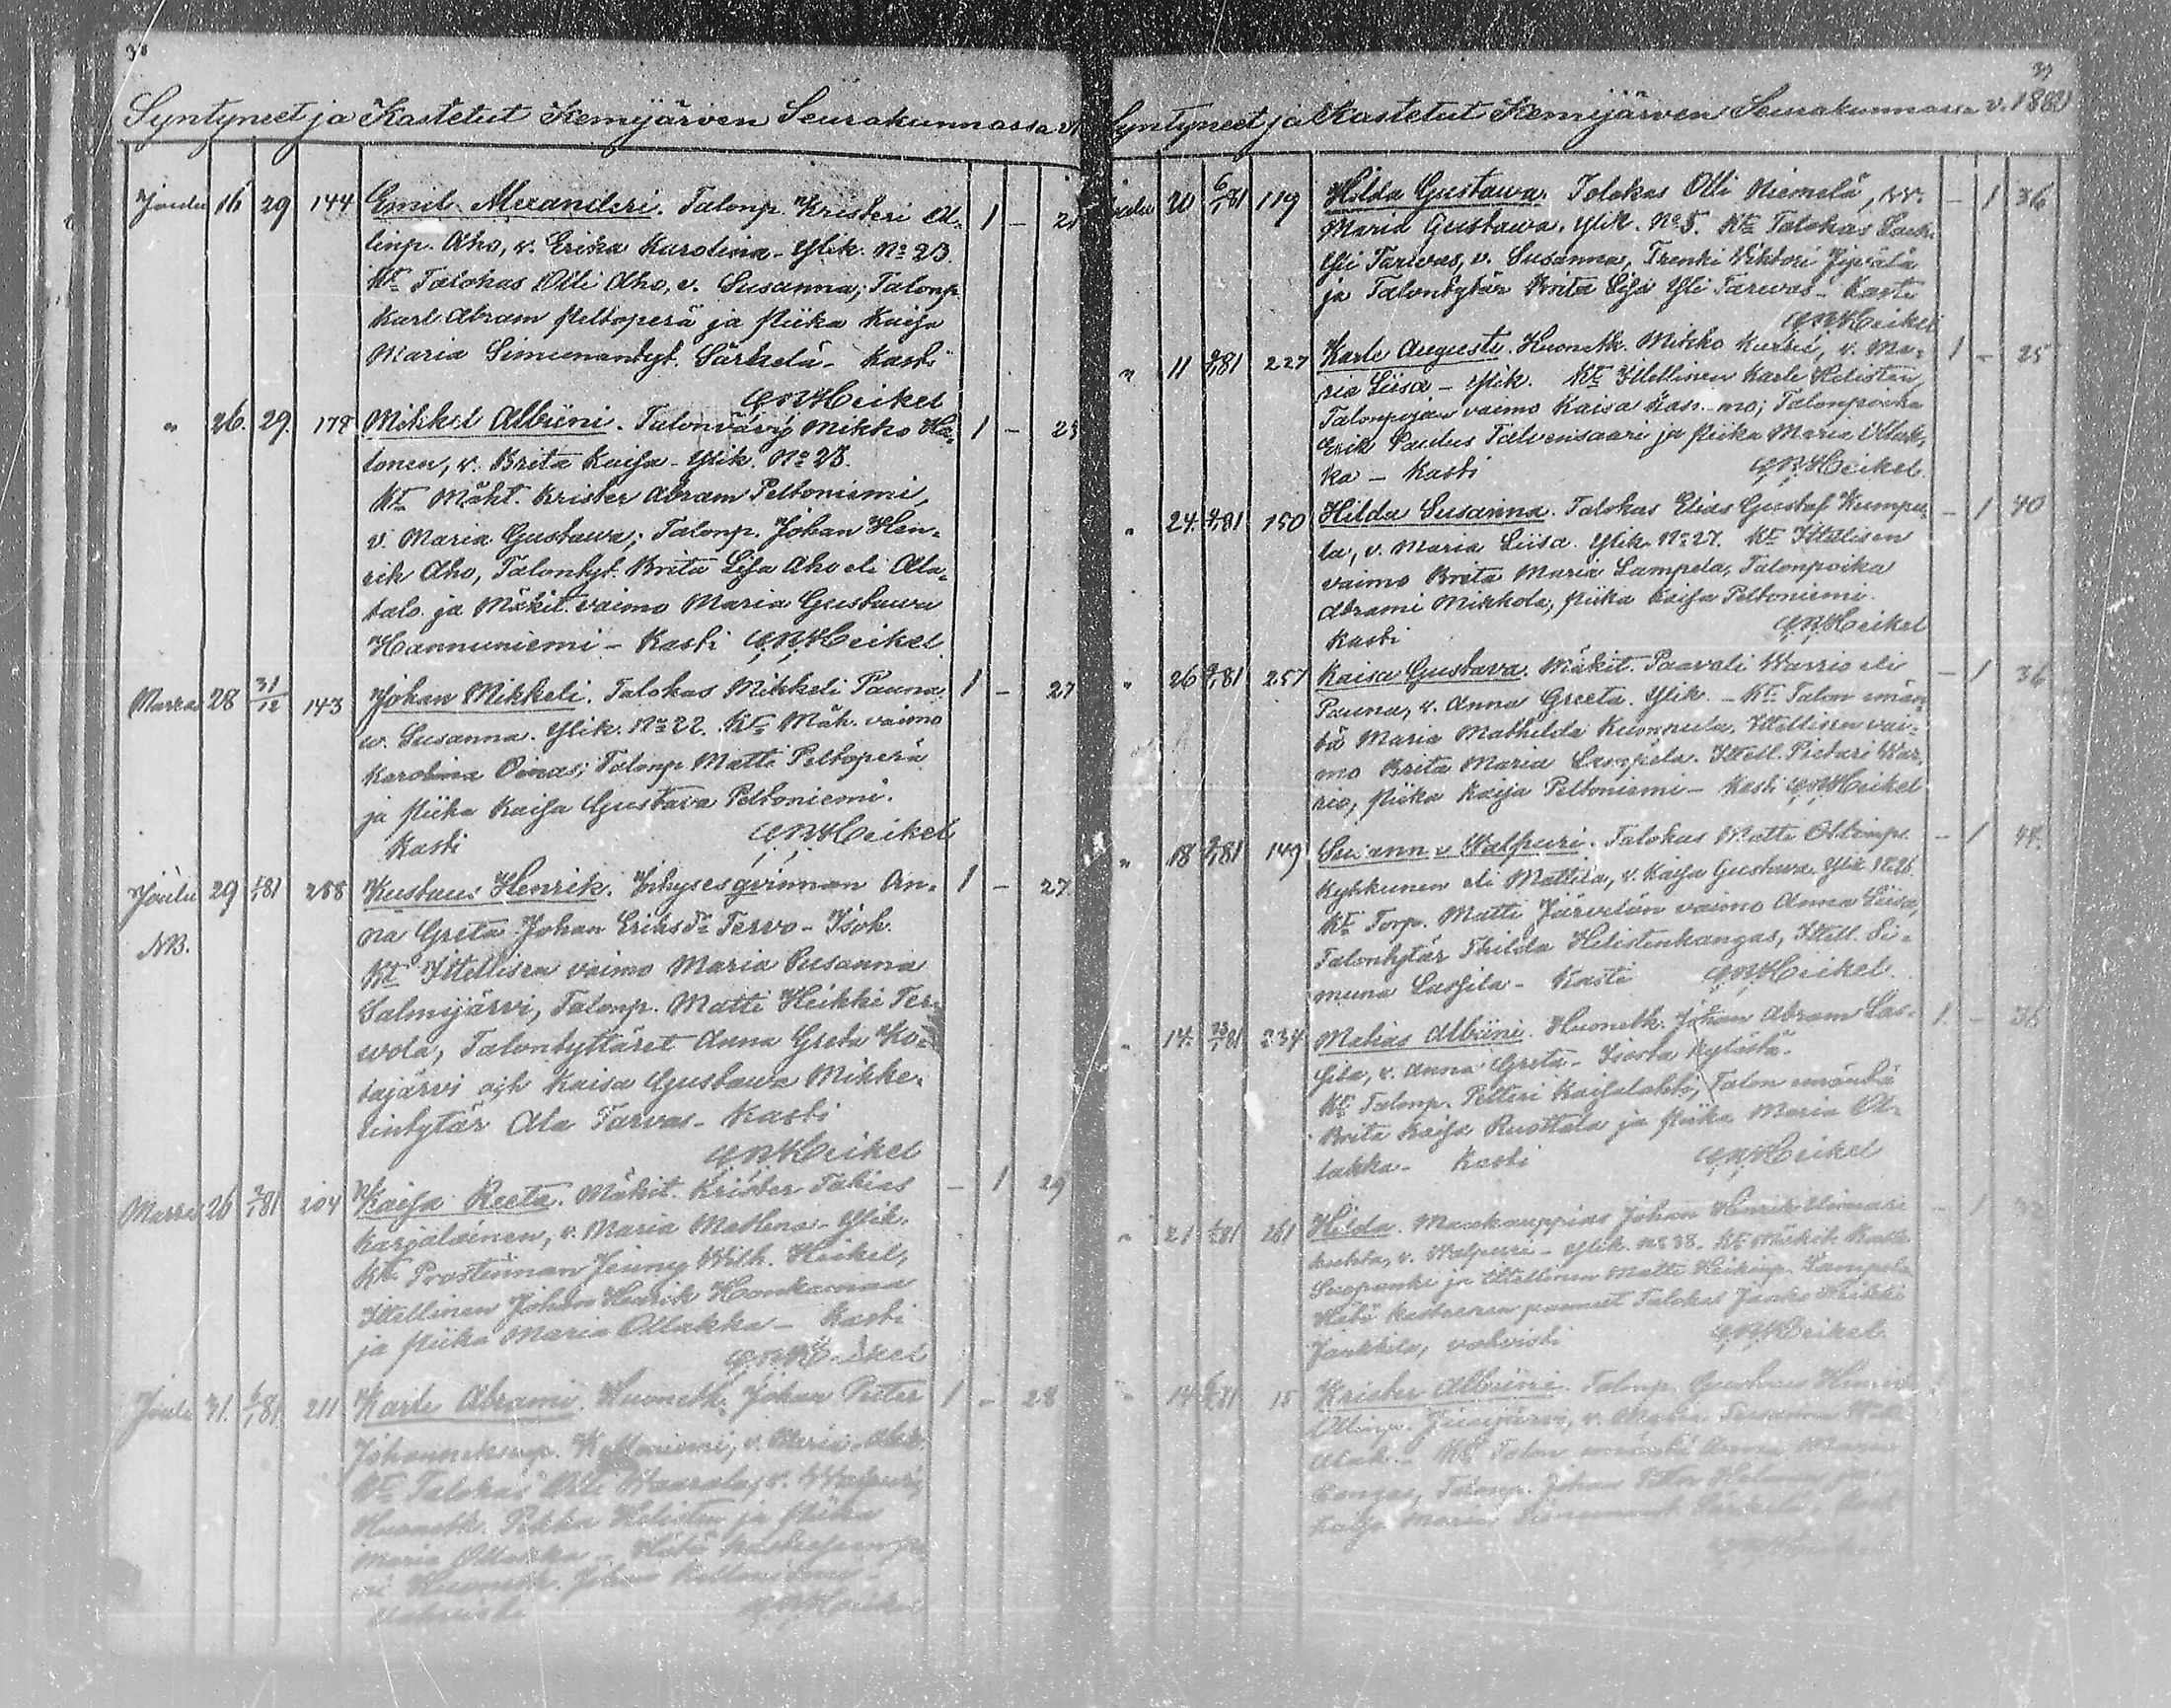 38
Syntyneet ja Kastetut Kemijärven Seurakunnassa v.
Joulu 16 29 144 Emil Alexanderi. Talonp. Kristeri Ol- 1 – 21
linp. Aho, v. Erika Karolina - Ylik. No 23.
Kt. Talokas Olli Aho, v. Susanna; Talonp.
Karl Abram Peltoperä ja Piika Kaisa
Maria Simunantyt. Särkelä - Kasti
G.N.Heikel
" 26. 29. 178 Mikkel Albiini. Talonvävy Mikko Ha- 1 – 23
tonen, v. Brita Kaisa - Ylik. No 23.
Kt. Mäkt. Krister Abram Peltoniemi,
v. Maria Gustawa; Talonp. Johan Hen-
rik Aho, Talontyt. Brita Lisa Aho eli Ala-
talo ja Mäkit. vaimo Maria Gustawa
Hannuniemi - Kasti G.N.Heikel
Marras 28 31/12 143 Johan Mikkeli. Talokas Mikkeli Pauna, 1 – 27
v. Susanna. Ylik. No 22. Kt. Mäk. vaimo
Karolina Oinas; Talonp. Matti Peltoperä
ja Piika Kaisa Gustava Peltoniemi.
Kasti G.N.Heikel
Joulu 29 1/1 81 258 Kustaus Henrik. Itsyses qvinnan An- 1 – 27
NB. na Greta Johan Eriksdr Tervo - Isok.
Kt. Ittellisen vaimo Maria Susanna
Salmijärvi, Talonp. Matti Heikki Ter-
wola, Talontyttäret Anna Greta Ko-
tajärvi och Kaisa Gustawa Mikke-
lintytär Ala Tarvas - Kasti
G.N.Heikel
Marras 26 2/1 81 204 Kaisa Reeta. Mäkit. Krister Tobias – 1 29
Karjalainen, v. Maria Mathena - Ylik.
Kt. Prostinnan Jenny Wilh. Heikel,
Ittellinen Johan Henrik Honkamaa
ja Piika Maria Ollakka - Kasti
G.N.Heikel
Joulu 31. 6/1 81. 211 Karle Abrami. Huonetk. Johan Peeter 1 – 28
Johanneksenp. Kettoniemi, v. Maria
Kt. Talokas Olli Waarala, v. Walpuri,
Huonetk. Pekka Helisten ja Piika
Maria Ollakka - Hätä
Huonetk. Johan
vahvisti G.N.Heikel
39
Syntyneet ja Kastetut Kemijärven Seurakunnassa v. 1880
Joulu 20 6/1 81 119 Hilda Gustawa. Talokas Olli Niemelä, v. – 1 36
Maria Gustawa. Ylik. No 5. Kt. Talokas
Yli Tarwas, v. Susanna, Trenki Wiktori
ja Talontytär Brita Lisa Yli Tarwas - Kasti
G.N.Heikel
" 11 81 227 Karle Auguste. Huonetk. Mikko Kurvi, v. Ma- 1 – 25
ria Liisa - Ylik. Kt. Ittellinen Karle Helisten,
Talonpojan vaimo Kaisa mo; Talonpoika
Erik Paulus Talvensaari ja Piika Maria Ollak-
ka - Kasti G.N.Heikel
" 24. 81 150 Hilda Susanna. Talokas Elias Gustaf Kumpu- – 1 40
la, v. Maria Liisa. Ylik. No 27. Kt. Ittellisen
vaimo Brita Maria Lampela, Talonpoika
Abrami Mikkola, Piika Kaisa Peltoniemi.
Kasti G.N.Heikel
" 26 81 257 Kaisa Gustava. Mäkit. Paavali Warrio eli – 1 36
Pauna, v. Anna Greeta. Ylik. - Kt. Talon emän-
tä Maria Mathilda Kumpula, Ittellisen vai-
mo Brita Maria Lampela. Ittell. Pietari War-
rio, Piika Kaisa Peltoniemi - Kasti G.N.Heikel
" 18 81 149 Susanna Walpuri. Talokas Matti Ollinp. – 1 44.
Kykkunen eli Mattila, v. Kaisa Gustava. Ylik No 26.
Kt. Torp. Matti Järvelän vaimo Anna Liisa,
Talontytär Thilda Helistenkangas, Ittell. Si-
muna Lassila - Kasti G.N.Heikel
" 14. 81 234 Matias Albiini. Huonetk. Johan Abram Las- 1. – 36
sila, v. Anna Greta - Isosta kylästä.
Kt. Talonp. Petteri Kaisalahti, Talon emäntä
Brita Kaisa Ruottala ja Piika Maria Ol-
lakka - Kasti G.N.Heikel
" 21. 81 261 Hilda. Maakauppias Johan Henrik – 1 32
v. Walpuri - Ylik. No 38. Kt. Mäkit.
Suopanki ja Ittellinen Matti Heikinp. Lampela
Hätä kasteeseen pannut Talokas Jaako Heikki
Jankkila, vahvisti G.N.Heikel
" 14 81 15 Krister Albiini. Talonp. Gustaus
Ollinp. v. Maria Susanna
Kt. Talon emäntä Anna Maria
Kangas, Talonp. Johan Petter
Kaisa Maria Särkelä